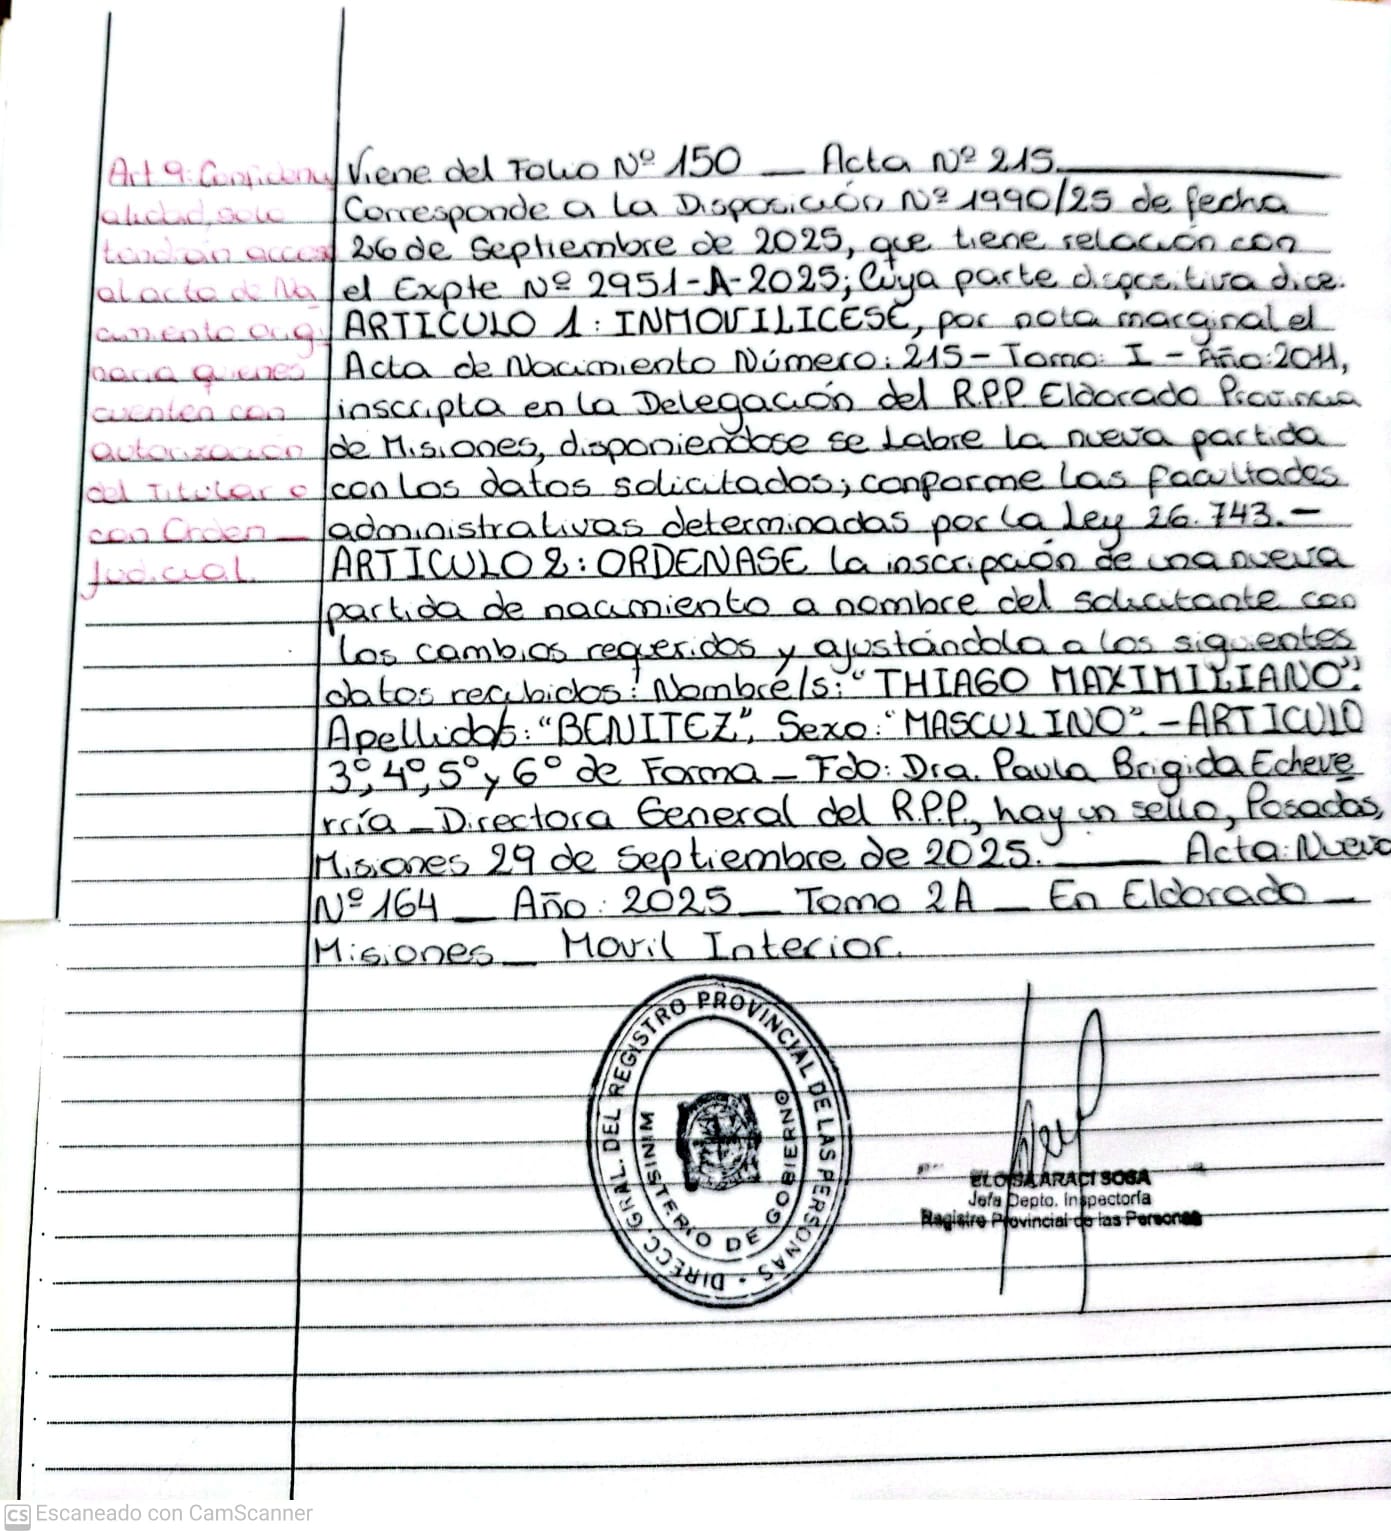 Art 9: Confidenci
alidad, solo
tendrán acceso
al acta de Na
cimiento orig
naria quienes
cuenten con
autorización
del Titular o
con Orden
Judicial.
Viene del Folio Nº 150 — Acta Nº 215.
Corresponde a la Disposición Nº 1990/25 de fecha
26 de Septiembre de 2025, que tiene relación con
el Expte Nº 2951-A-2025; Cuya parte dispositiva dice:
ARTICULO 1: INMOVILICESE, por nota marginal el
Acta de Nacimiento Número: 215 - Tomo: I - Año: 2011,
inscripta en la Delegación del R.P.P Eldorado Provincia
de Misiones, disponiendose se Labre la nueva partida
con los datos solicitados; conforme las facultades
administrativas determinadas por la Ley 26.743.-
ARTICULO 2: ORDENASE la inscripción de una nueva
partida de nacimiento a nombre del solicitante con
los cambios requeridos y ajustándola a los siguientes
datos recibidos: Nombre/s: "THIAGO MAXIMILIANO".
Apellido/s: "BENITEZ", Sexo: "MASCULINO". - ARTICULO
3º, 4º, 5º y 6º de Forma - Fdo: Dra. Paula Brigida Echeve
rría - Directora General del R.P.P., hay un sello, Posadas,
Misiones 29 de Septiembre de 2025. — Acta: Nueva
Nº 164 — Año: 2025 — Tomo 2A — En Eldorado —
Misiones — Movil Interior.
DIRECC. GRAL. DEL REGISTRO PROVINCIAL DE LAS PERSONAS
MINISTERIO DE GOBIERNO
ELOISA ARACI SOSA
Jefa Depto. Inspectoría
Registro Provincial de las Personas
CS Escaneado con CamScanner